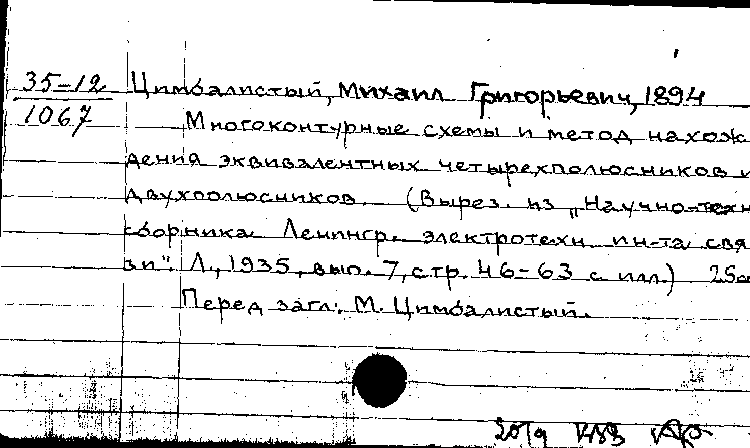 35-12
1067
Цимбалистый, Михаил Григорьевич, 1894
Многоконтурные схемы и метод нахож
дения эквивалентных четырехполюсников и
двухполюсников. (Вырез. из „Научно-техн
сборника Ленингр. электротехн. ин-та свя
зи". Л., 1935, вып. 7, стр. 46-63 с илл.)
Перед загл.: М. Цимбалистый.